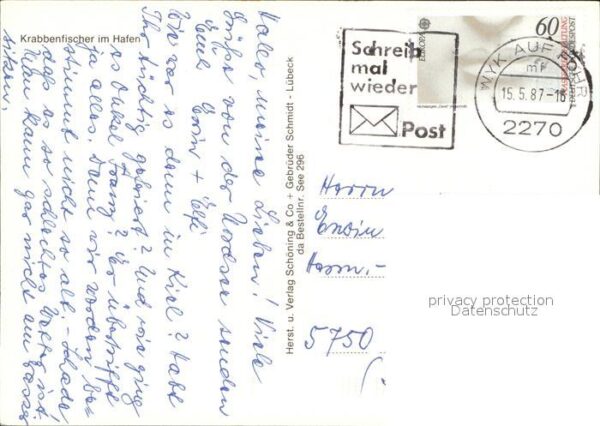 Krabbenfischer im Hafen
Hallo, meine Lieben! Viele
Grüße von der Nordsee senden
Euch Erwin + Elfi
Wie war es denn in Kiel? Habt
Ihr tüchtig gefeiert? Und wie ging
es Onkel Franz? Er übertrifft
ja alles. Dann wir werden be-
stimmt nicht so alt. - Schade
daß es so schlechtes Wetter ist.
Man kann gar nicht am Wasser
sitzen.
Herst. u. Verlag Schöning & Co + Gebrüder Schmidt - Lübeck
da Bestellnr. See 296
Schreib
mal
wieder
Post
EUROPA
60
DEUTSCHE BUNDESPOST
WYK AUF FÖHR
mf
15.5.87-16
2270
Herrn
Erwin
Herm.-
5750
privacy protection
Datenschutz